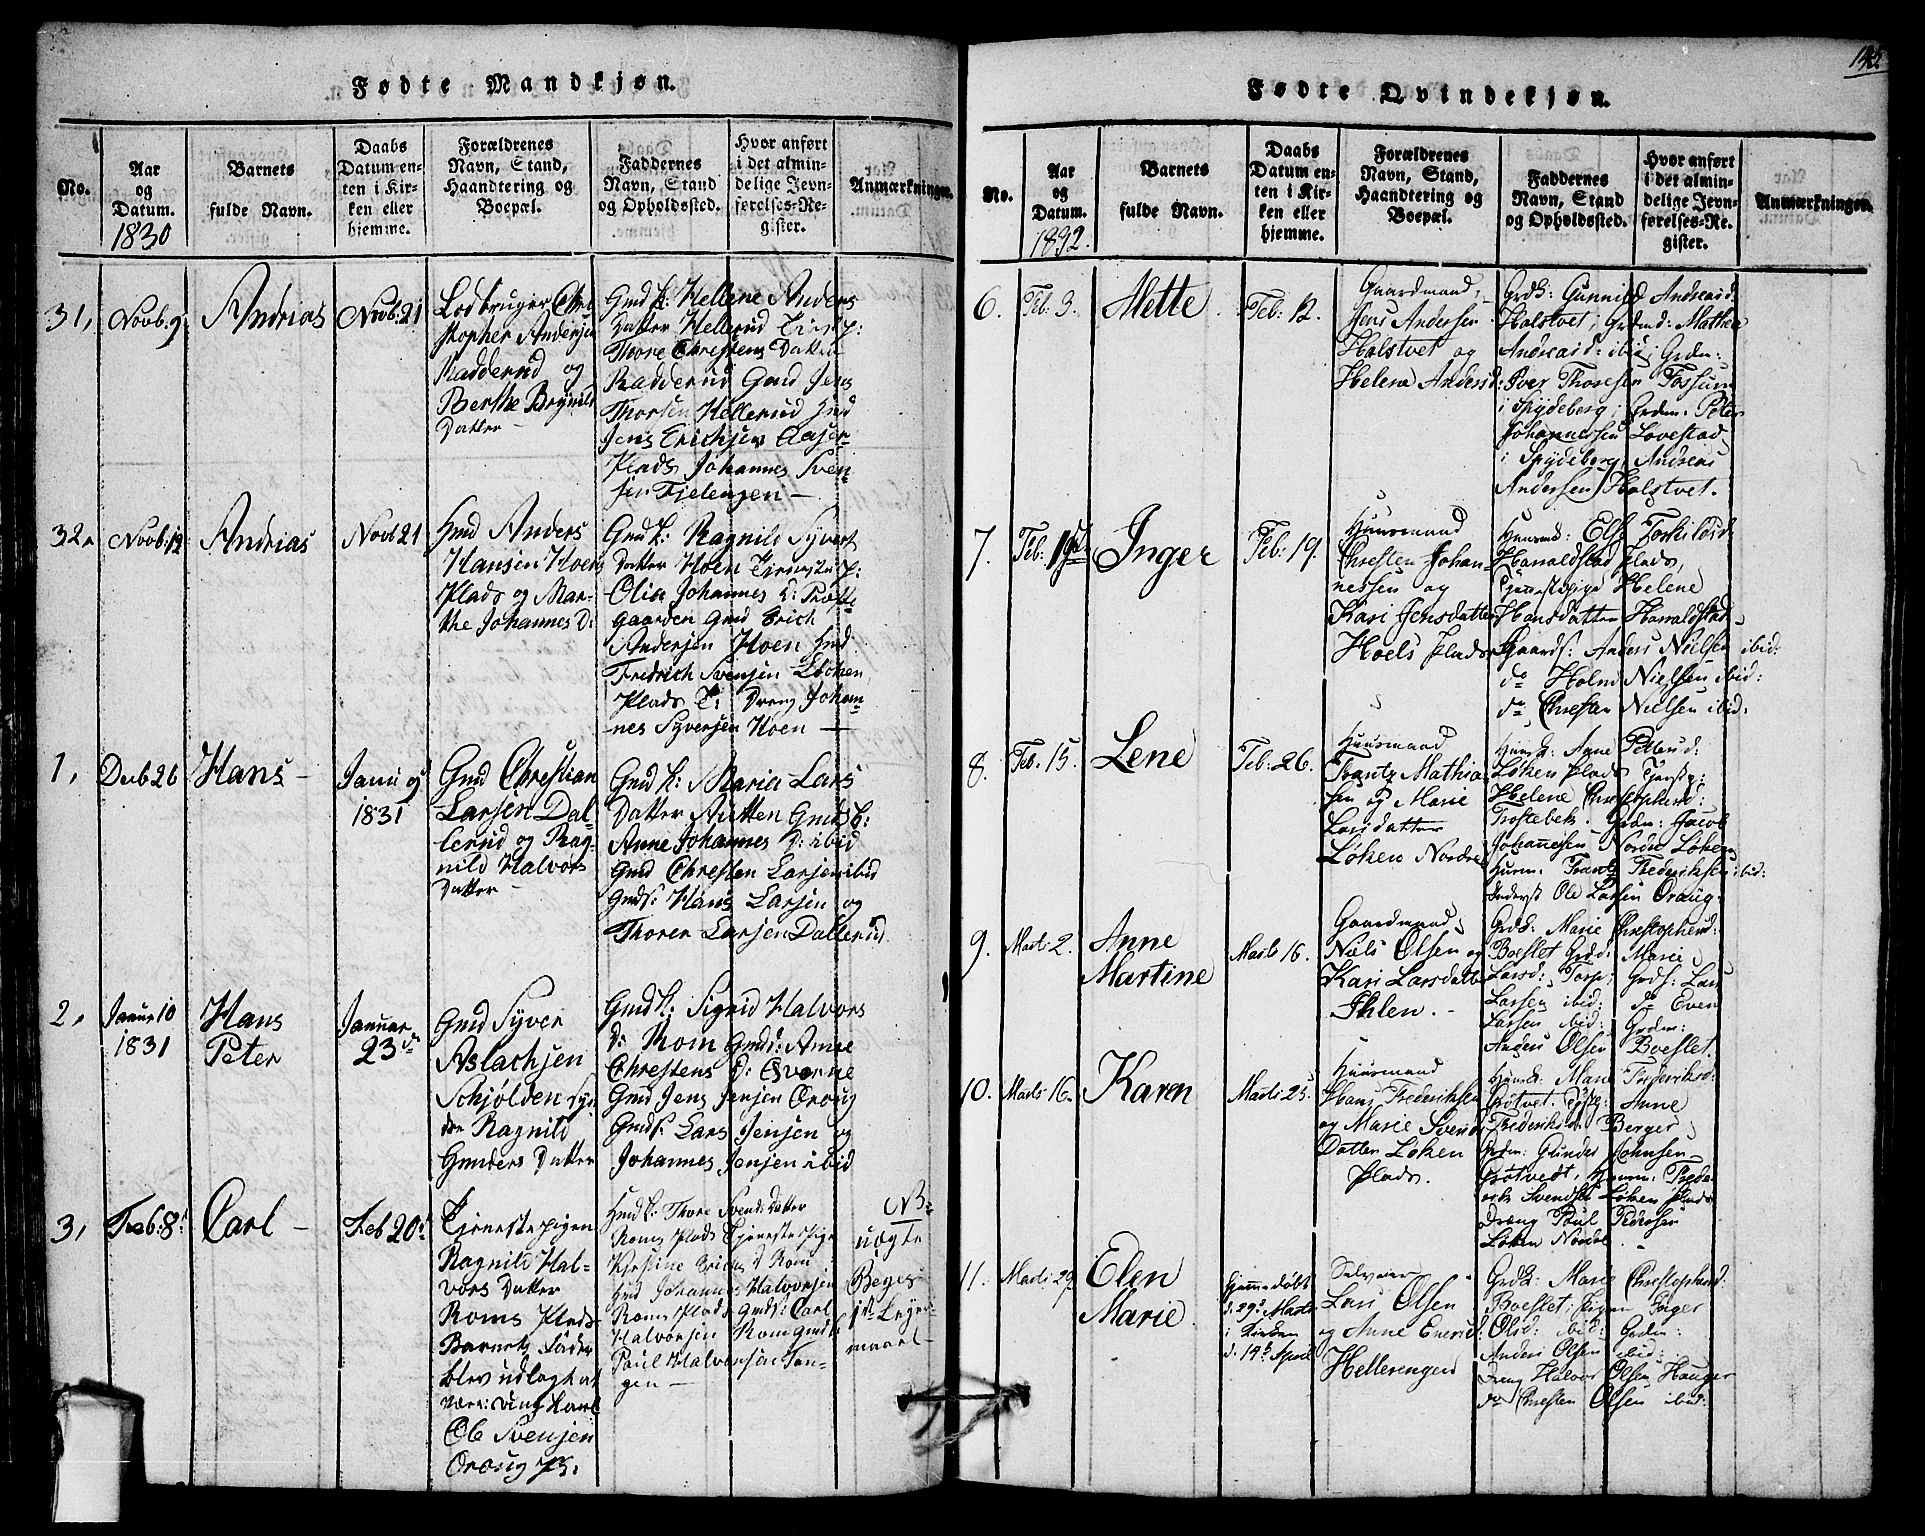 Fødte Mandkjøn.
No.
Aar
og
Datum.
1830
Barnets
fulde Navn.
Daabs
Datum en-
ten i Kir-
ken eller
hjemme.
Forældrenes
Navn, Stand,
Haandtering og
Boepæl.
Faddernes
Navn, Stand
og Opholdssted.
Hvor anført
i det almin-
delige Jevn-
førelses-Re-
gister.
Anmærkninger.
31,
Novb. 9
Andrias
Novb. 21
Lodbruger Chri
stopher Andersen
Radderud og
Berthe Brynild
Datter
Gmd k: Hellene Anders
Datter Hellerud
Thore Christens Datter
Radderud Gmd Jens
Thorsen Hellerud Hmd
Jens Erichsen Aaser-
Plads Johannes Sven
sen Fjelengen
32.
Novb: 12
Andrias
Novb 21
Hmd Anders
Hansen Hoens
Plads og Mar-
the Johannes D:
Gmd k: Ragnild Syvert
Datter Hoen
Olia Johannes D:
gaarden Gmd Erich
Andersen Hoen Hmd
Fredrich Svensen Løken
Plads Dreng Johan
nes Syversen Hoen
1,
Decb 26
Hans
Janu 9
1831
Gmd Christian
Larsen Dal-
lerud og Rag-
nild Halvors
Datter
Gmd k: Maria Lars
Datter Autten Gmds k:
Anne Johannes D: ibid
Gmd Christen Larsen ibid
Gmds: Hans Larsen og
Thorer Larsen Dallerud
2,
Januar 10
1831
Hans
Peter
Januar
23
Gmd Syver
Aslachsen
Schjølden
Ragnild
Gunders Datter
Gmd k: Sigrid Halvors
D: Rom Gmds: Anne
Christens D:
Gmd Jens Jensen Oraug
Gmds: Lars Jensen og
Johannes Jensen ibid
3,
Feb: 8
Carl
Feb 20
Tjenestepigen
Ragnild Hal-
vors Datter
Roms Plads
Barnets Fader
blev udlagt at
være: ung Karl
Ob Svensen
Oraug
Hmd k: Thore Svends Datter
Roms Plads Tjenestepige
Kirstine Erics D Rom
Hmd Johannes Halvorsen
Roms Plads Gmds: Carl
Halvorsen Rom Gmds
Paul Halvorsen Tan-
gen
NB
uægte
Beges
1ste Leyer
maal
Fødte Qvindekjøn.
142
No.
Aar
og
Datum.
1832.
Barnets
fulde Navn.
Daabs
Datum en-
ten i Kir-
ken eller
hjemme.
Forældrenes
Navn, Stand,
Haandtering og
Boepæl.
Faddernes
Navn, Stand
og Opholdssted.
Hvor anført
i det almin-
delige Jevn-
førelses-Re-
gister.
Anmærkninger.
6.
Feb: 3.
Mette
Feb: 12.
Gaardmand
Jens Andersen
Holstvet og
Helene Andersd:
Grdk: Gunnild Andreasd:
Holstvet; Grdmd: Mathea
Andreasd: ibid; Grdm:
Iver Thoresen Fossum
i Spydeberg; Grdm: Peter
Johannessen Lovestad
i Spydeberg, Andreas
Andersen Holstvet.
7.
Feb: 19
Inger
Feb: 19.
Huusmand
Christen Johan-
nessen og
Kari Jensdatter
Hoels Plads
Huusmd: Else Torkildsd:
Haraldstad Plads,
Tjenestepige Helene
Hansdatter Haraldstad
Gaards: Anders Nielsen ibid:
do Holm Nielsen ibid:
do Christen Nielsen ibid:
8.
Feb. 15.
Lene
Feb: 26.
Huusmand
Frantz Mathia
sen og Marie
Larsdatter
Løken Nordre
Huusk: Anne
Løken Plads Tjenstp:
Helene Christophersd:
Trostebek. Grdm: Jacob
Johannesen Nordre Løken
Huusm: Frantz Frederiksen ibid:
Inderst Ole Larsen Oraug.
9.
Marts 2.
Anne
Martine
Marts 16.
Gaardmand
Niels Olsen og
Kari Larsdatter
Ihlen.
Grdk: Marie Christophersd:
Boeslet Grdd: Marie
Larsd: Torp; Grds: Lars
Larsen ibid: do Even
Larsen ibid: Grdm:
Anders Olsen Boeslet.
10.
Marts 16.
Karen
Marts 25.
Huusmand
Hans Frederiksen
og Marie Svends
Datter Løken
Plads.
Huusk: Marie Frederiksd:
Grøtvet. Anne
Frederiksd: Berger
Grdm: Gunder Johnsen
Grøtvedt, Huusm: Frede
erik Svendsen Løken Plads
Dreng Paul Pedersen
Løken Nordre
11.
Marts 29
Elen
Marie
Hjemmedøbt
d. 29 Marts
i Kirken
d. 14 April
Selveier
Lars Olsen
og Anne Eversd:
Hellerengen
Grdk: Marie Christophersd:
Boeslet; Pigen Inger
Olsd: ibid: Grdm:
Anders Olsen ibid:
Dreng Halvor Olsen Hauger
do Christen Olsen ibid: